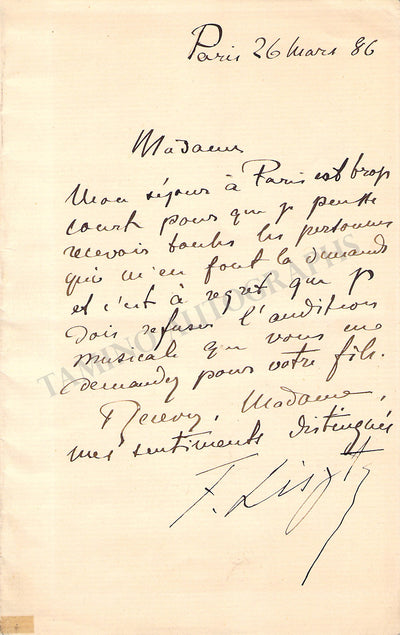 Paris 26 Mars 86
Madame
Mon séjour à Paris est trop
court pour que je puisse
recevoir toutes les personnes
qui m'en font la demande
et c'est à regret que je
dois refuser l'audition
musicale que vous me
demandez pour votre fils.
Recevez, Madame,
mes sentiments distingués
F. Liszt
TAMINO AUTOGRAPHS